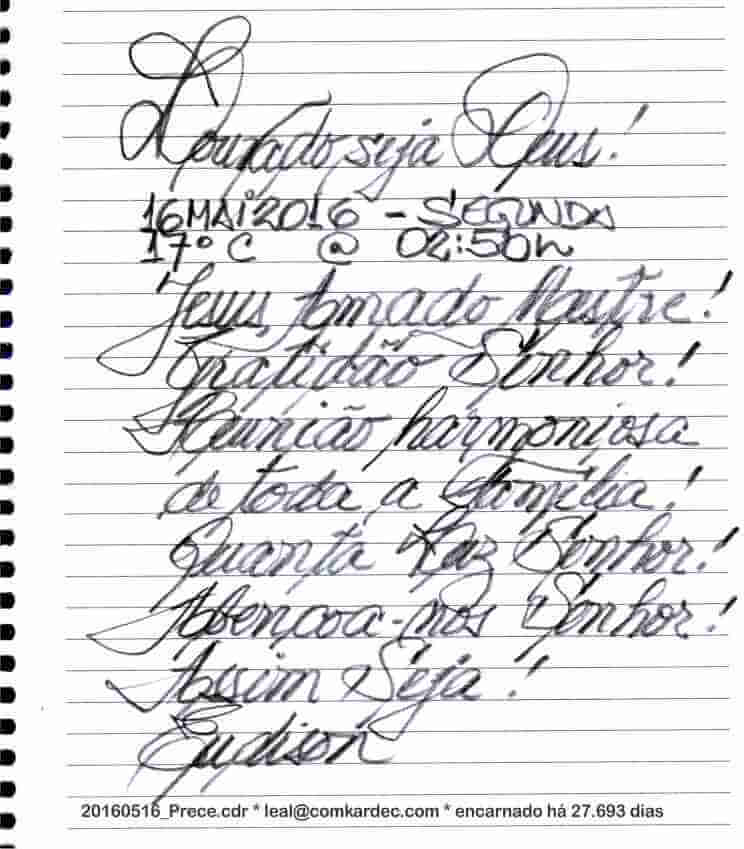 Louvado seja Deus!
16MAI2016 - SEGUNDA
17º C @ 02:50h
Jesus, Amado Mestre!
Gratidão Senhor!
Reunião harmoniosa
de toda a Família!
Quanta Paz Senhor!
Abençoa-nos Senhor!
Assim Seja!
Eudison
20160516_Prece.cdr * leal@comkardec.com * encarnado há 27.693 dias